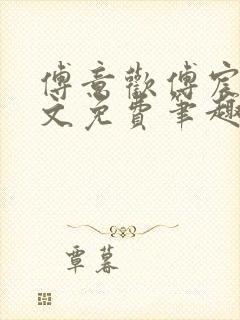 傅意歡傅宸
文免費筆趣
覃暮